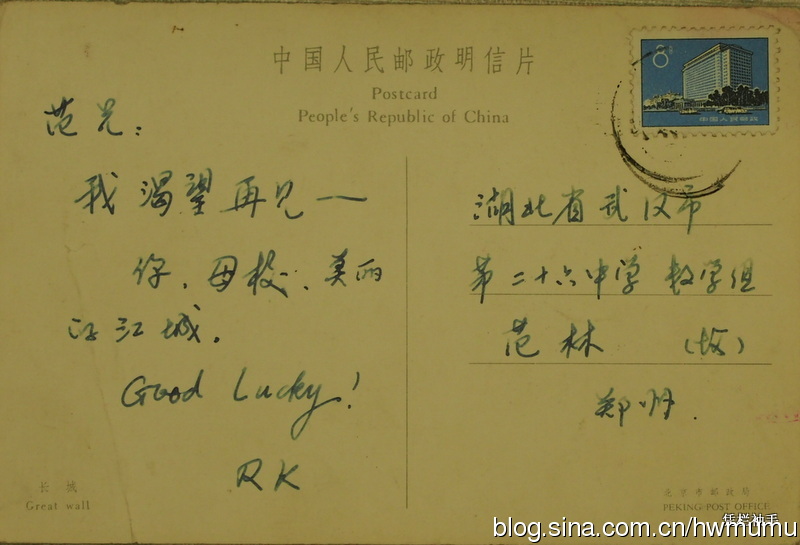 中国人民邮政明信片
Postcard
People's Republic of China
8
中国人民邮政
范兄：
我渴望再见一
你、母校、美丽
的江城。
Good Lucky!
RK
湖北省武汉市
第二十六中学 数学组
范林 （收）
郑州.
长城
Great wall
北京市邮政局
PEKING POST OFFICE
凭栏袖手
blog.sina.com.cn/hwmumu